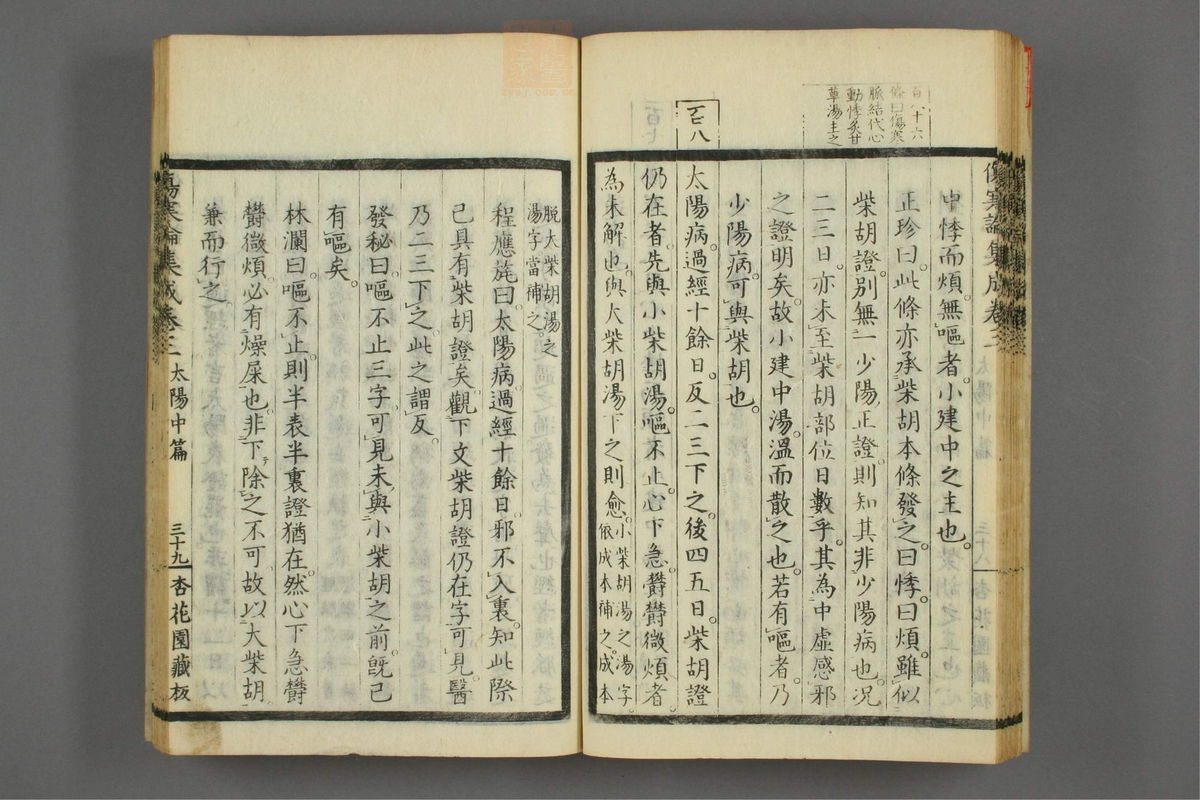 傷寒論集成卷三
太陽中篇
三十八
杏花園藏板
百八十六
條曰傷寒
脈結代心
動悸炙甘
草湯主之
中悸而煩。無嘔者。小建中之主也。
正珍曰。此條亦承柴胡本條發之。曰悸。曰煩。雖似
柴胡證。別無一少陽正證。則知其非少陽病也。況
二三日。亦未至柴胡部位日數乎。其為中虛感邪
之證明矣。故小建中湯。溫而散之也。若有嘔者。乃
少陽病。可與柴胡也。
百八
太陽病。過經十餘日。反二三下之。後四五日。柴胡證
仍在者。先與小柴胡湯。嘔不止。心下急。鬱鬱微煩者。
為未解也。與大柴胡湯下之則愈。小柴胡湯之湯字。
依成本補之。成本
脫大柴胡湯之
湯字當補之。
程應旄曰。太陽病。過經十餘日。邪不入裏。知此際
已具有柴胡證矣。觀下文柴胡證仍在字可見。醫
乃二三下之。此之謂反。
發秘曰。嘔不止三字。可見未與小柴胡之前。既已
有嘔矣。
林瀾曰。嘔不止。則半表半裏證猶在。然心下急。鬱
鬱微煩。必有燥屎也。非下除之不可。故以大柴胡
兼而行之。
傷寒論集成卷三
太陽中篇
三十九
杏花園藏板